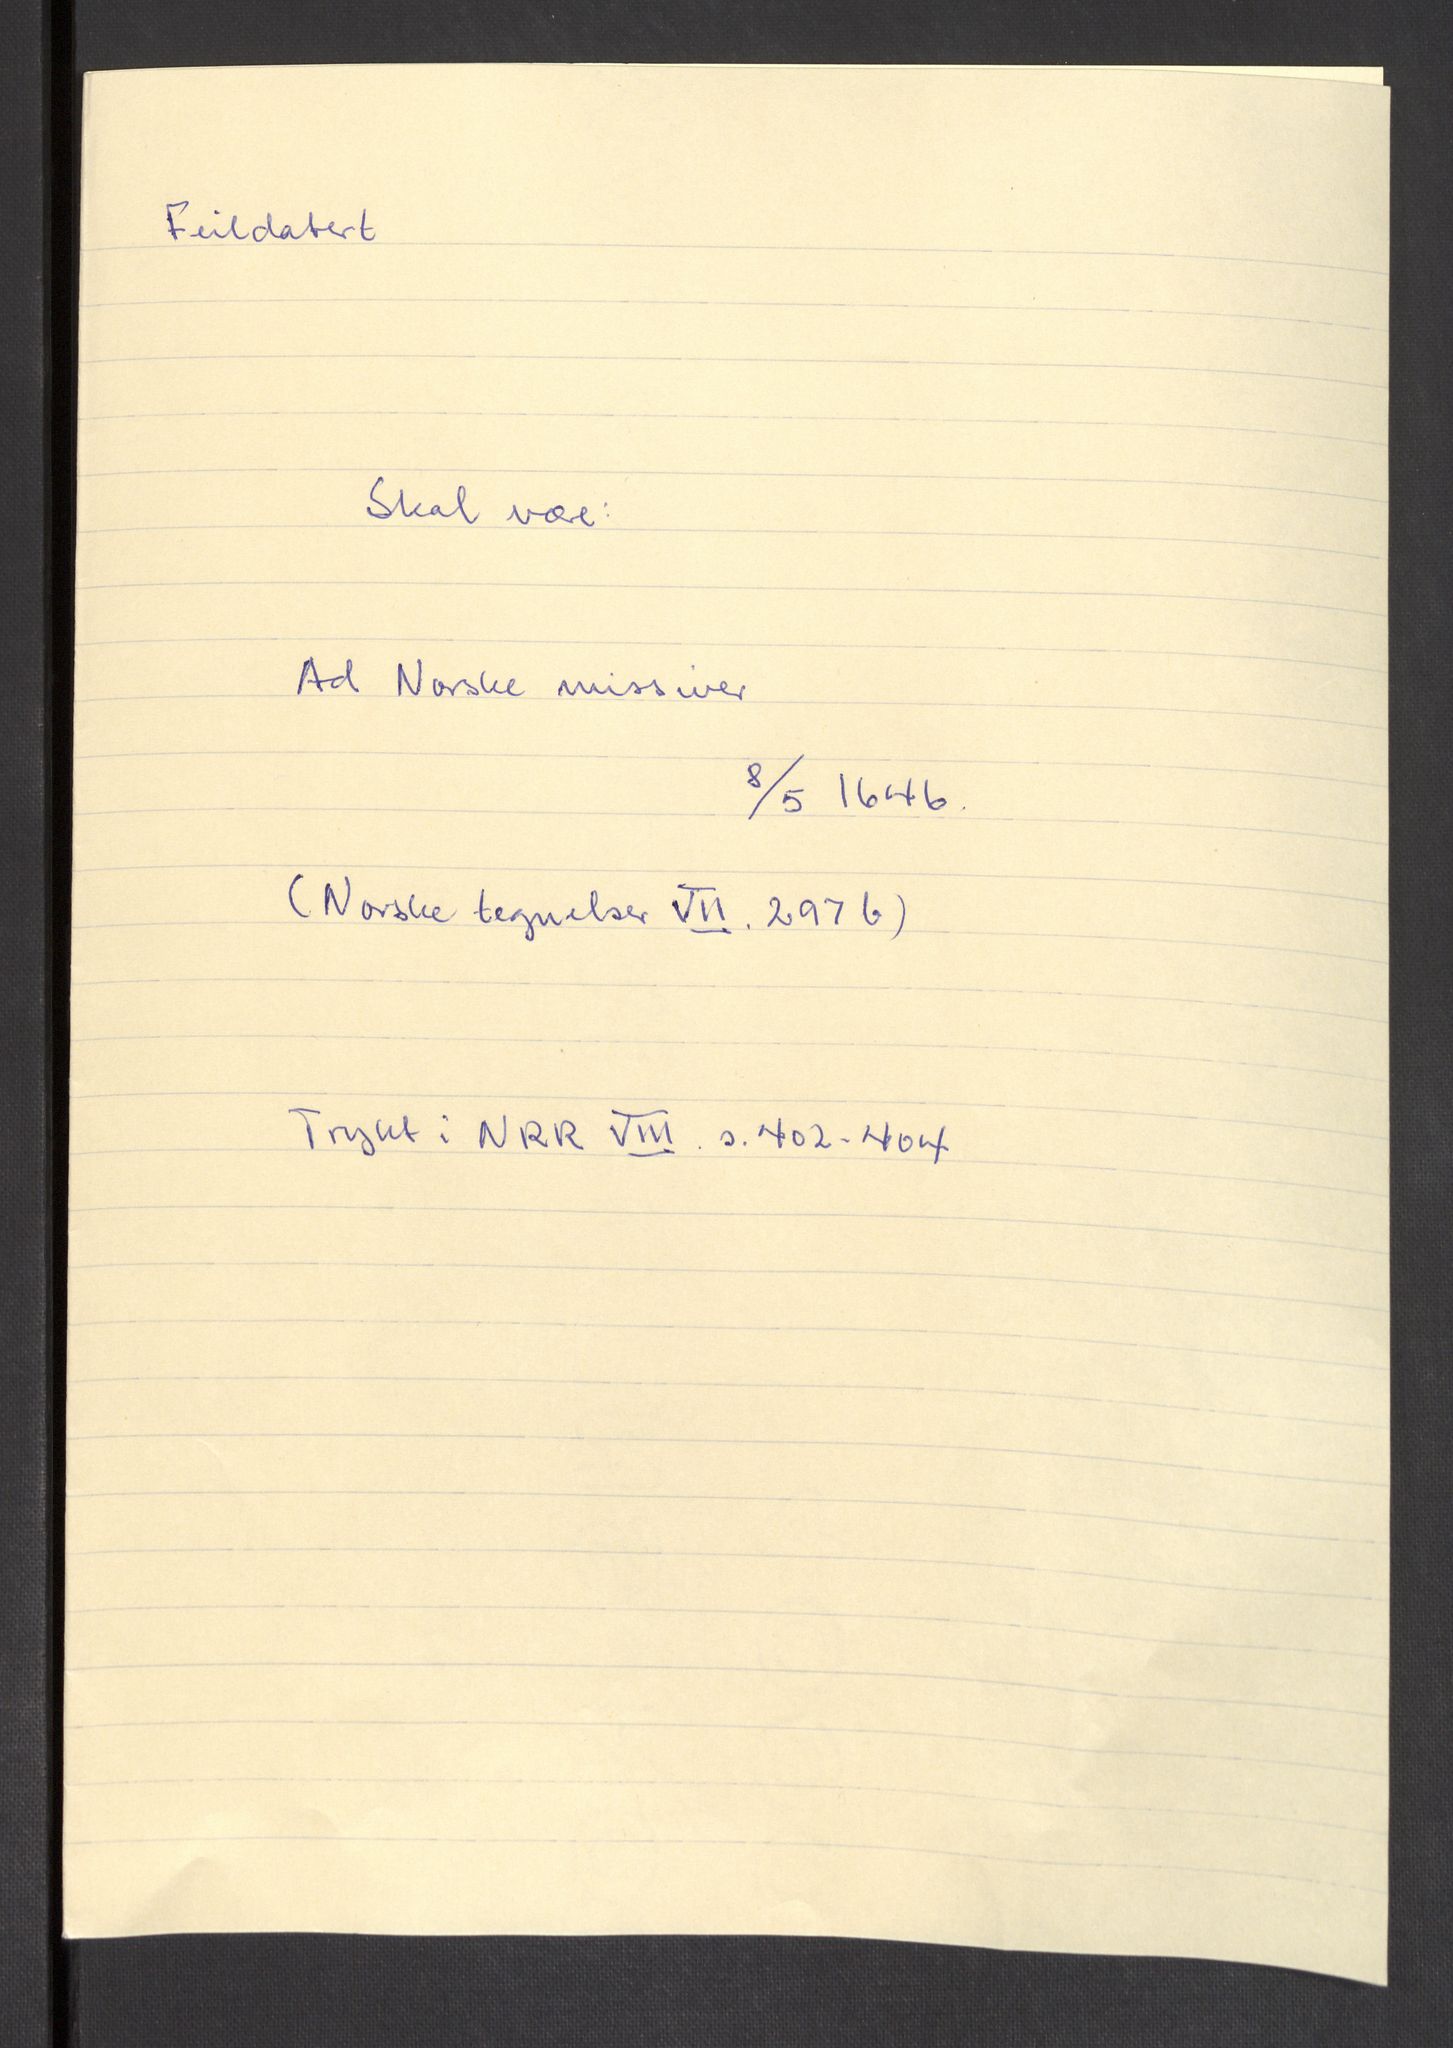 Feildatert
Skal være:
Ad Norske missiver
8/5 1646.
(Norske tegnelser VII. 297 b)
Trykt i NRR VIII. s. 402-404